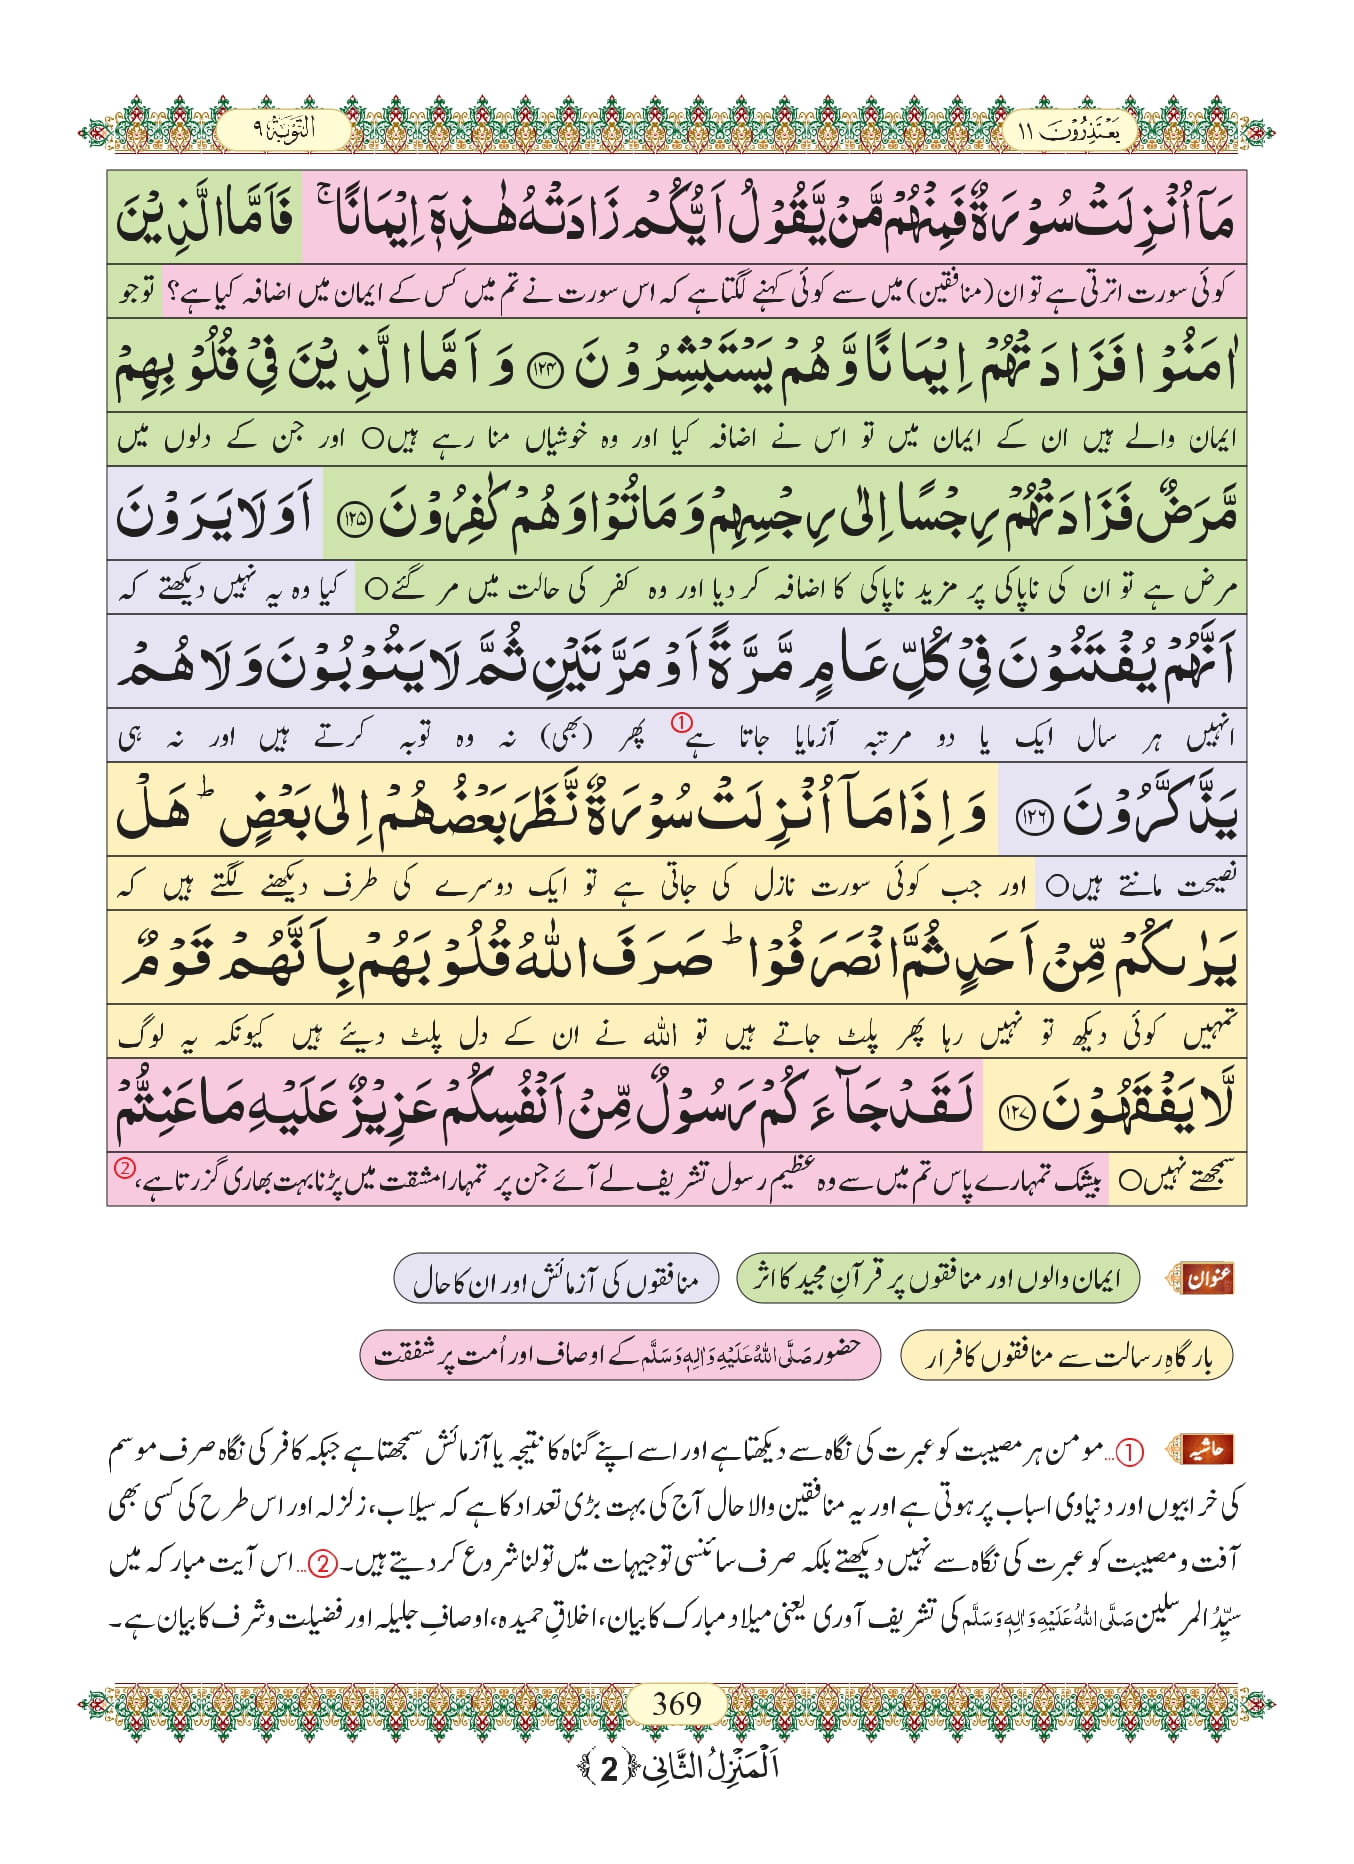 یَعْتَذِرُوْنَ ۱۱
التَّوْبَۃ ۹
مَاۤ اُنْزِلَتْ سُوْرَةٌ فَمِنْهُمْ مَّنْ یَّقُوْلُ اَیُّكُمْ زَادَتْهُ هٰذِهٖۤ اِیْمَانًا ۚ فَاَمَّا الَّذِیْنَ
کوئی سورت اترتی ہے تو ان (منافقین) میں سے کوئی کہنے لگتا ہے کہ اس سورت نے تم میں کس کے ایمان میں اضافہ کیا ہے؟ تو جو
اٰمَنُوْا فَزَادَتْهُمْ اِیْمَانًا وَّ هُمْ یَسْتَبْشِرُوْنَ ﴿۱۲۴﴾ وَ اَمَّا الَّذِیْنَ فِیْ قُلُوْبِهِمْ
ایمان والے ہیں ان کے ایمان میں تو اس نے اضافہ کیا اور وہ خوشیاں منا رہے ہیں○ اور جن کے دلوں میں
مَّرَضٌ فَزَادَتْهُمْ رِجْسًا اِلٰى رِجْسِهِمْ وَ مَاتُوْا وَ هُمْ كٰفِرُوْنَ ﴿۱۲۵﴾ اَوَ لَا یَرَوْنَ
مرض ہے تو ان کی ناپاکی پر مزید ناپاکی کا اضافہ کر دیا اور وہ کفر کی حالت میں مر گئے○ کیا وہ یہ نہیں دیکھتے کہ
اَنَّهُمْ یُفْتَنُوْنَ فِیْ كُلِّ عَامٍ مَّرَّةً اَوْ مَرَّتَیْنِ ثُمَّ لَا یَتُوْبُوْنَ وَ لَا هُمْ
انہیں ہر سال ایک یا دو مرتبہ آزمایا جاتا ہے① پھر (بھی) نہ وہ توبہ کرتے ہیں اور نہ ہی
یَذَّكَّرُوْنَ ﴿۱۲۶﴾ وَ اِذَا مَاۤ اُنْزِلَتْ سُوْرَةٌ نَّظَرَ بَعْضُهُمْ اِلٰى بَعْضٍ ؕ هَلْ
نصیحت مانتے ہیں○ اور جب کوئی سورت نازل کی جاتی ہے تو ایک دوسرے کی طرف دیکھنے لگتے ہیں کہ
یَرٰىكُمْ مِّنْ اَحَدٍ ثُمَّ انْصَرَفُوْا ؕ صَرَفَ اللّٰهُ قُلُوْبَهُمْ بِاَنَّهُمْ قَوْمٌ
تمہیں کوئی دیکھ تو نہیں رہا پھر پلٹ جاتے ہیں تو اللہ نے ان کے دل پلٹ دیئے ہیں کیونکہ یہ لوگ
لَّا یَفْقَهُوْنَ ﴿۱۲۷﴾ لَقَدْ جَآءَكُمْ رَسُوْلٌ مِّنْ اَنْفُسِكُمْ عَزِیْزٌ عَلَیْهِ مَا عَنِتُّمْ
سمجھتے نہیں○ بیشک تمہارے پاس تم میں سے وہ عظیم رسول تشریف لے آئے جن پر تمہارا مشقت میں پڑنا بہت بھاری گزرتا ہے،②
عنوان ایمان والوں اور منافقوں پر قرآنِ مجید کا اثر منافقوں کی آزمائش اور ان کا حال
بارگاہِ رسالت سے منافقوں کا فرار حضور صَلَّی اللہُ عَلَیْهِ وَاٰلِهٖ وَسَلَّم کے اوصاف اور اُمت پر شفقت
حاشیہ ①...مومن ہر مصیبت کو عبرت کی نگاہ سے دیکھتا ہے اور اسے اپنے گناہ کا نتیجہ یا آزمائش سمجھتا ہے جبکہ کافر کی نگاہ صرف موسم
کی خرابیوں اور دنیاوی اسباب پر ہوتی ہے اور یہ منافقین والا حال آج کی بہت بڑی تعداد کا ہے کہ سیلاب، زلزلہ اور اس طرح کی کسی بھی
آفت و مصیبت کو عبرت کی نگاہ سے نہیں دیکھتے بلکہ صرف سائنسی توجیہات میں تولنا شروع کر دیتے ہیں۔②...اس آیت مبارکہ میں
سیّدُ المرسلین صَلَّی اللہُ عَلَیْهِ وَاٰلِهٖ وَسَلَّم کی تشریف آوری یعنی میلاد مبارک کا بیان، اخلاقِ حمیدہ، اوصافِ جلیلہ اور فضیلت و شرف کا بیان ہے۔
369
اَلْمَنْزِلُ الثَّانِی ﴿2﴾